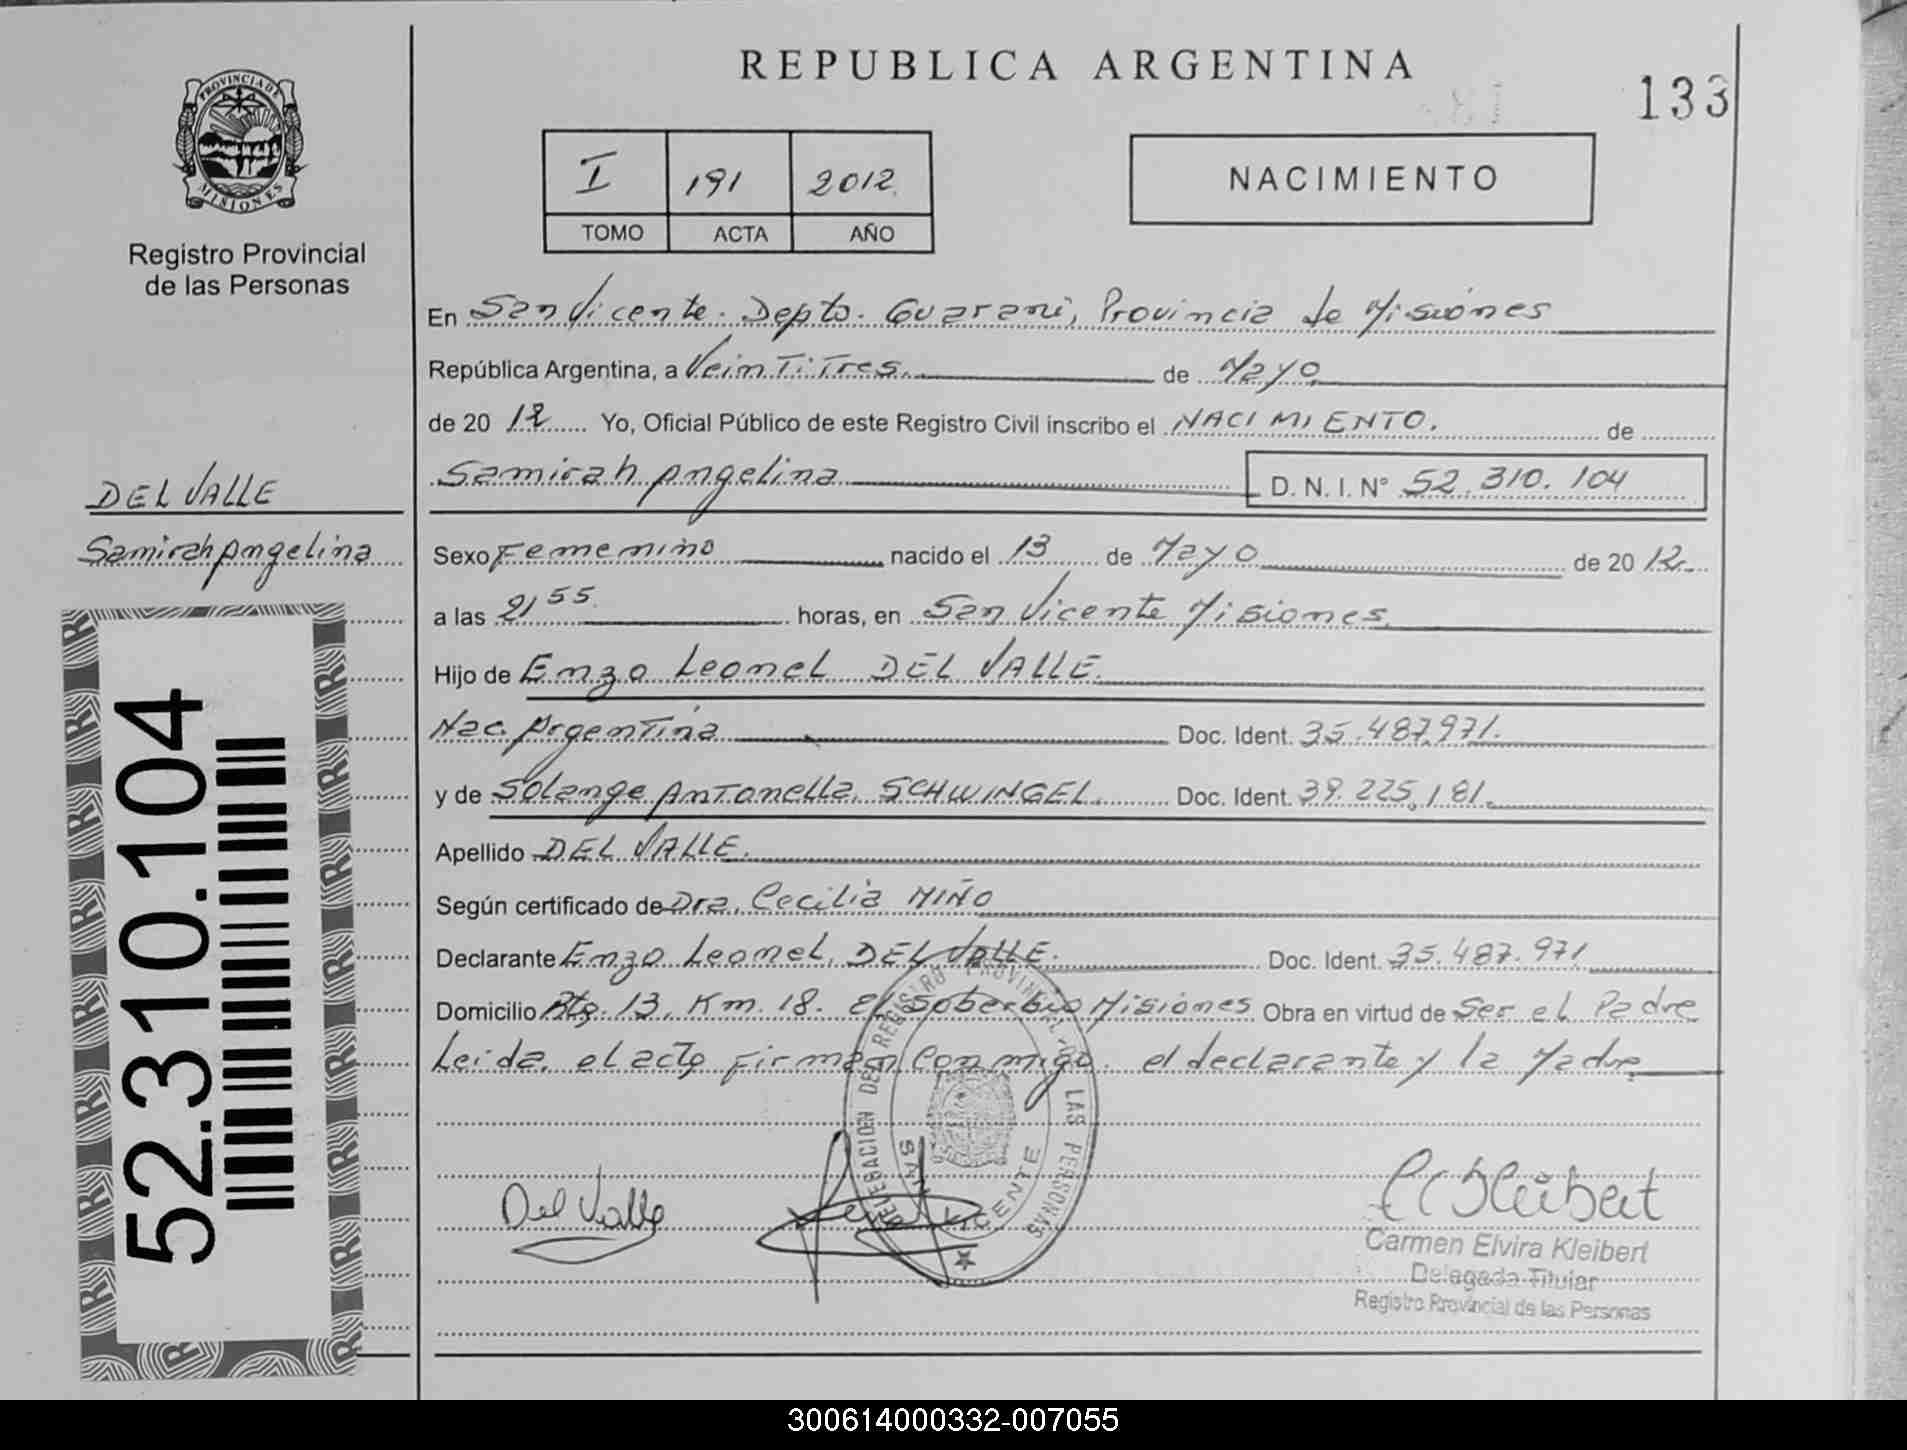 REPUBLICA ARGENTINA
133
PROVINCIA DE
MISIONES
Registro Provincial
de las Personas
I 191 2012
TOMO ACTA AÑO
NACIMIENTO
En San Vicente. Depto. Guarani, Provincia de Misiones
República Argentina, a Veintitres. de Mayo
de 20 12 Yo, Oficial Público de este Registro Civil inscribo el NACIMIENTO. de
Samirah Angelina D. N. I. N° 52.310.104
DEL VALLE
Samirah Angelina
Sexo Femenino nacido el 13 de Mayo de 20 12
a las 21 55 horas, en San Vicente Misiones.
Hijo de Enzo Leonel DEL VALLE.
Nac. Argentina Doc. Ident. 35.487.971.
y de Solange Antonella. SCHWINGEL. Doc. Ident. 39.225.181.
Apellido DEL VALLE.
Según certificado de Dra. Cecilia MIÑO
Declarante Enzo Leonel. DEL VALLE. Doc. Ident. 35.487.971
Domicilio Rta. 13. Km. 18. El Soberbio Misiones Obra en virtud de Ser el Padre
Leida. el acta firman conmigo. el declarante y la Madre
DELEGACION DEL REGISTRO PROVINCIAL DE LAS PERSONAS
SAN VICENTE
Del Valle
C Kleibert
Carmen Elvira Kleibert
Delegada Titular
Registro Provincial de las Personas
52.310.104
300614000332-007055